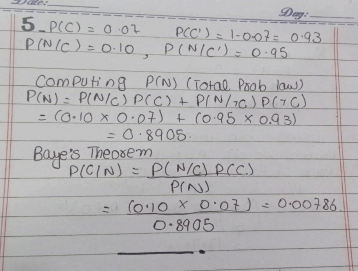 Date: Day:
5 P(C) = 0.07 P(C') = 1-0.07 = 0.93
P(N/C) = 0.10 , P(N/C') = 0.95
Computing P(N) (Total Prob law)
P(N) = P(N/C) P(C) + P(N/¬C) P(¬C)
= (0.10 × 0.07) + (0.95 × 0.93)
= 0.8905.
Baye's Theorem
P(C/N) = P(N/C) P(C)
P(N)
= (0.10 × 0.07) = 0.00786
0.8905